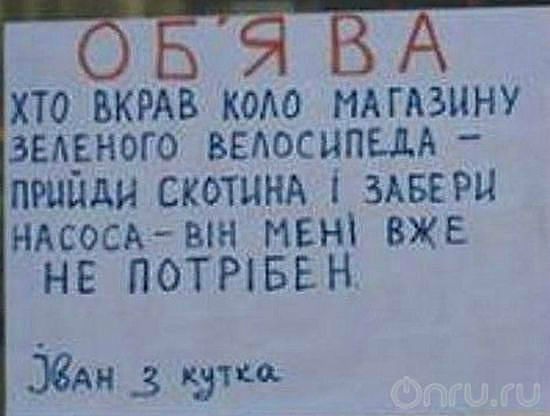 ОБ'ЯВА
ХТО ВКРАВ КОЛО МАГАЗИНУ
ЗЕЛЕНОГО ВЕЛОСИПЕДА –
ПРИЙДИ СКОТИНА І ЗАБЕРИ
НАСОСА – ВІН МЕНІ ВЖЕ
НЕ ПОТРІБЕН.
Іван з кутка
Onru.ru